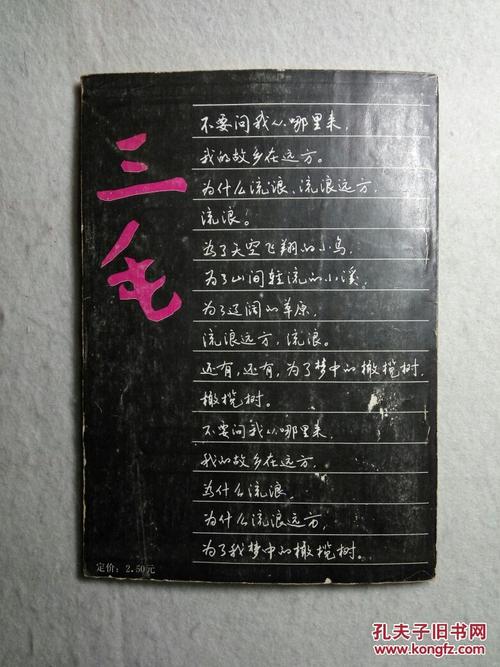 三毛
不要问我从哪里来,
我的故乡在远方。
为什么流浪、流浪远方,
流浪。
为了天空飞翔的小鸟,
为了山间轻流的小溪,
为了辽阔的草原,
流浪远方,流浪。
还有,还有,为了梦中的橄榄树,
橄榄树。
不要问我从哪里来,
我的故乡在远方,
为什么流浪,
为什么流浪远方,
为了我梦中的橄榄树。
定价:2.50元
孔夫子旧书网
www.kongfz.com